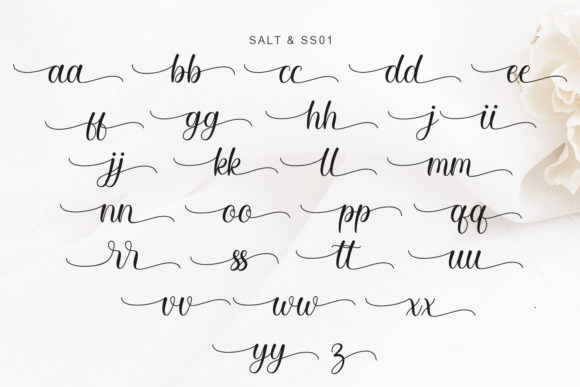 SALT & SS01
aa bb cc dd ee
ff gg hh j ii
jj kk ll mm
nn oo pp qq
rr ss tt uu
vv ww xx
yy z